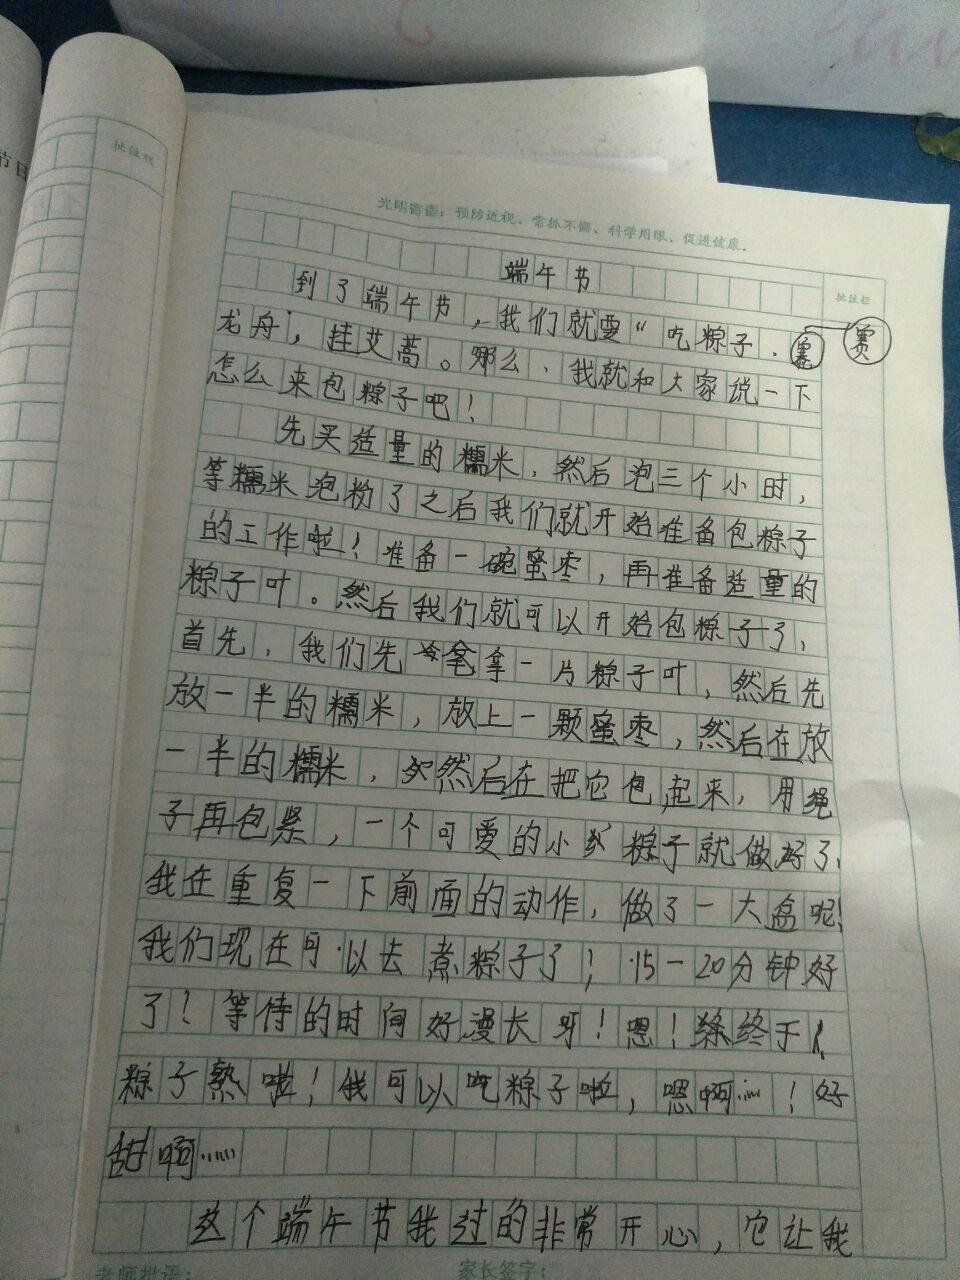 节日
批注栏
光明寄语：预防近视、常抓不懈、科学用眼、促进健康.
批注栏
端午节
到了端午节，我们就要“吃粽子、赛
赛
龙舟”，挂艾蒿。那么、我就和大家说一下
怎么来包粽子吧！
先买适量的糯米，然后泡三个小时，
等糯米泡粉了之后我们就开始准备包粽子
的工作啦！准备一碗蜜枣，再准备适量的
粽子叶。然后我们就可以开始包粽子了，
首先，我们先拿一片粽子叶，然后先
放一半的糯米，放上一颗蜜枣，然后在放
一半的糯米，然后在把它包起来，用绳
子再包紧，一个可爱的小粽子就做好了、
我在重复一下前面的动作，做了一大盒呢！
我们现在可以去煮粽子了！15-20分钟好
了！等待的时间好漫长呀！嗯！终于、
粽子熟啦！我可以吃粽子啦，嗯啊……！好
甜啊……
这个端午节我过的非常开心，它让我
老师批语：
家长签字：